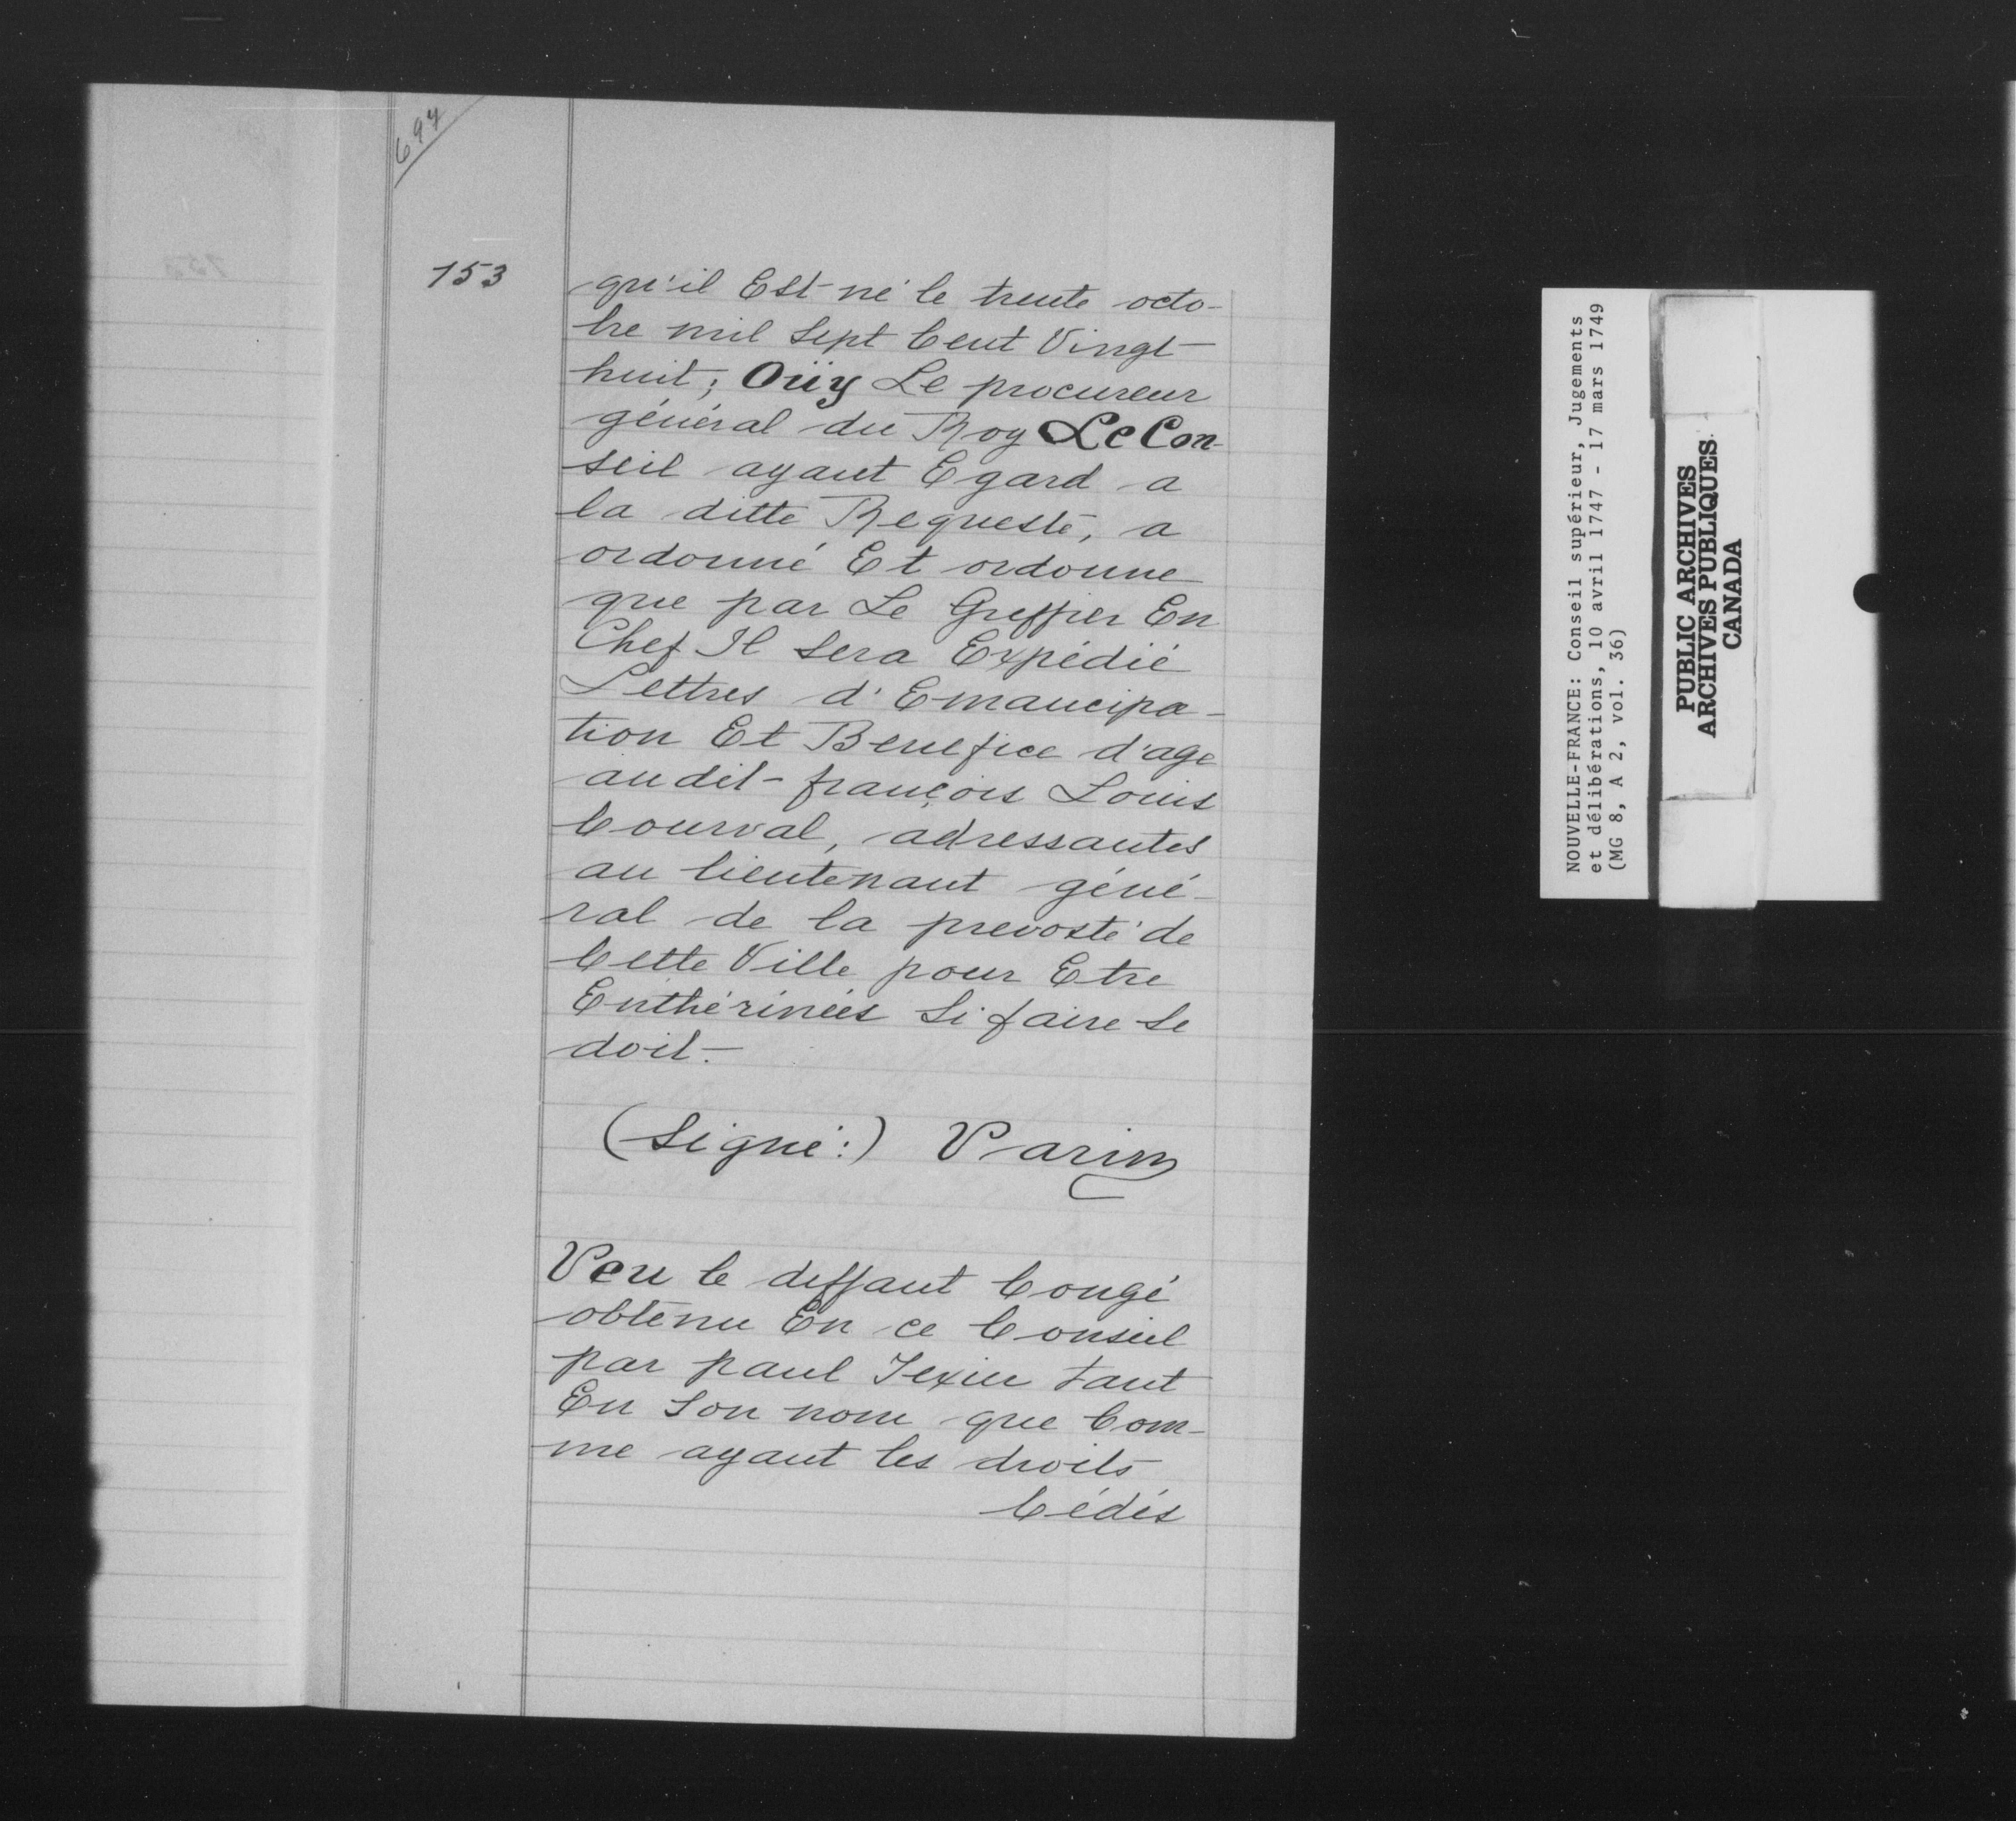 694
153
qu'il Est né le trente octo-
bre mil Sept Cent Vingt
huit; Oüy Le procureur
général du Roy Le Con-
seil ayant Egard a
la ditte Requeste, a
ordonné Et ordonne
que par Le Greffier En
Chef Il sera Expédié
Lettres d'Emancipa-
tion Et Benefice d'age
audit françois Louis
Courval, adressantes
au lieutenant géné-
ral de la prevosté de
Cette Ville pour Etre
Enthérinées Si faire se
doit.
(Signé:) Varin
Veu le deffaut Congé
obtenu En ce Conseil
par paul Texier tant
En Son nom que Com-
me ayant les droits
Cédés
NOUVELLE-FRANCE: Conseil supérieur, Jugements
et délibérations, 10 avril 1747 - 17 mars 1749
(MG 8, A 2, vol. 36)
PUBLIC ARCHIVES
ARCHIVES PUBLIQUES
CANADA